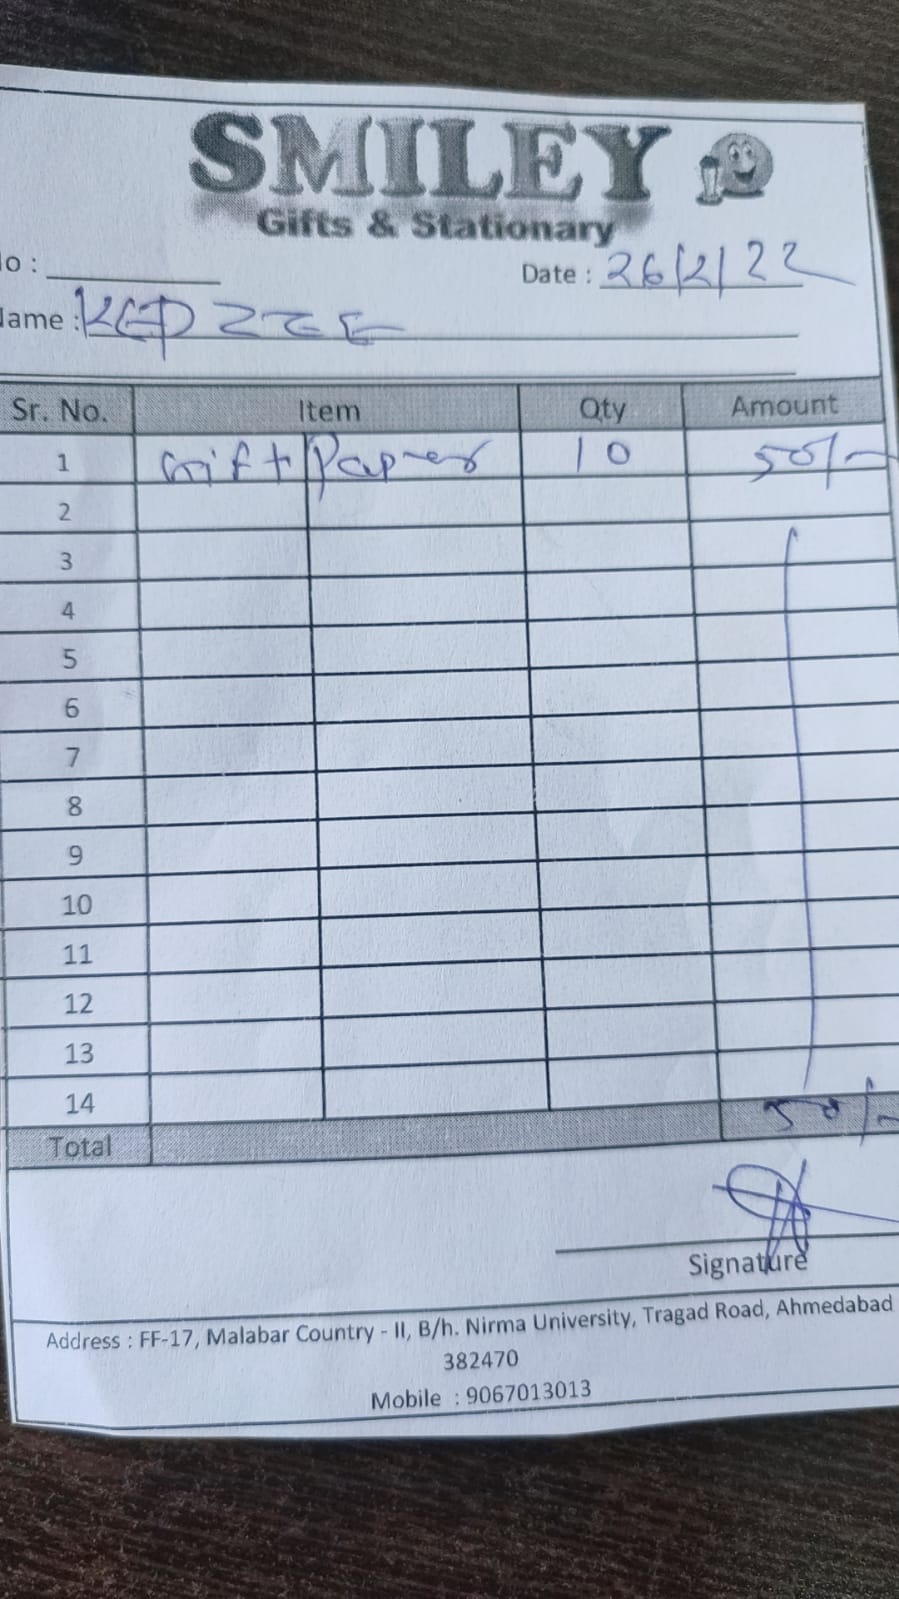 SMILEY
Gifts & Stationary
lo :
Date : 26/2/22
lame : KEDZEE
Sr. No. Item Qty Amount
1 Gift Paper 10 50/-
2
3
4
5
6
7
8
9
10
11
12
13
14 50/-
Total
Signature
Address : FF-17, Malabar Country - II, B/h. Nirma University, Tragad Road, Ahmedabad
382470
Mobile : 9067013013